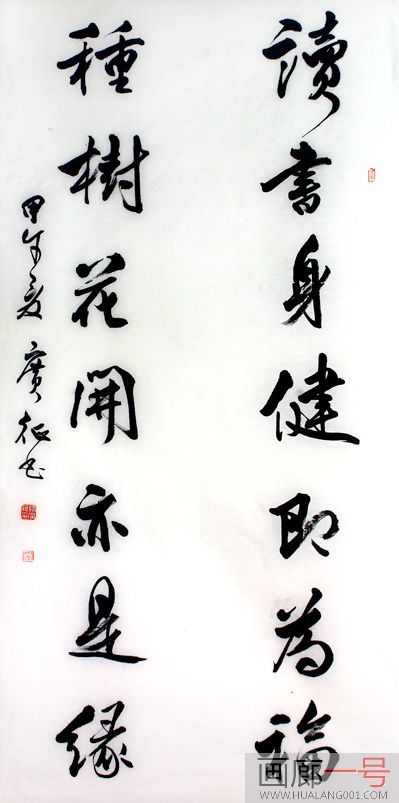 讀書身健即為福
種樹花開亦是緣
甲午夏廣征书
画廊一号
WWW.HUALANG001.COM